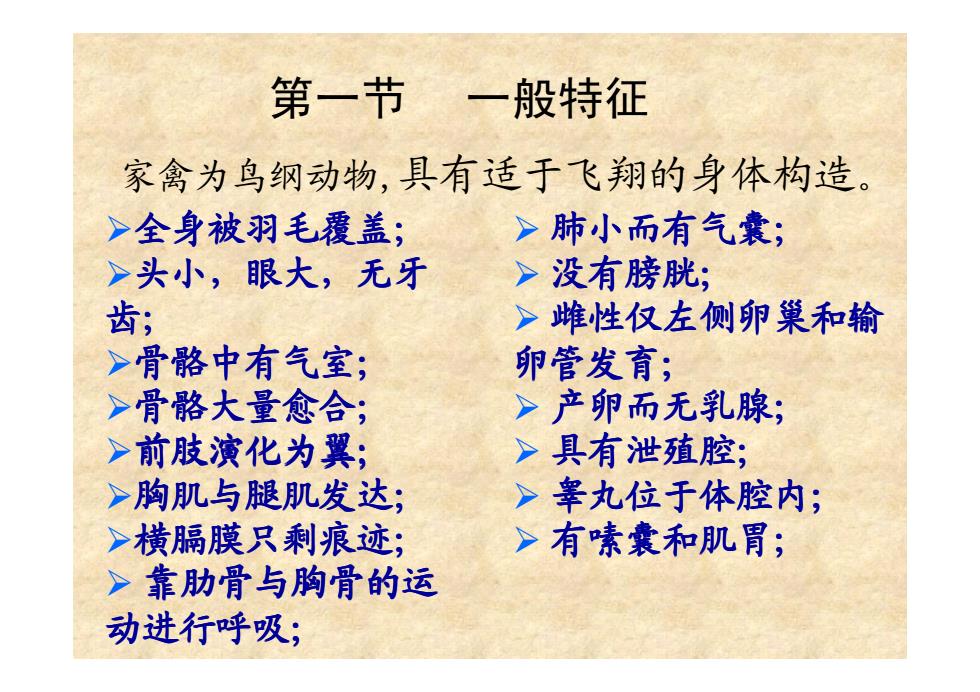 第一节　一般特征
家禽为鸟纲动物,具有适于飞翔的身体构造。
➢全身被羽毛覆盖;
➢头小，眼大，无牙
齿;
➢骨骼中有气室;
➢骨骼大量愈合;
➢前肢演化为翼;
➢胸肌与腿肌发达;
➢横膈膜只剩痕迹;
➢ 靠肋骨与胸骨的运
动进行呼吸;
➢ 肺小而有气囊;
➢ 没有膀胱;
➢ 雌性仅左侧卵巢和输
卵管发育;
➢ 产卵而无乳腺;
➢ 具有泄殖腔;
➢ 睾丸位于体腔内;
➢ 有嗉囊和肌胃;